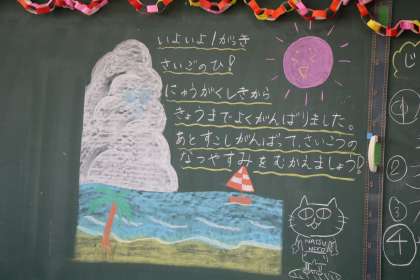 いよいよ1がっき
さいごのひ!
にゅうがくしきから
きょうまでよくがんばりました。
あとすこしがんばって、さいこうの
なつやすみをむかえましょう!
NATSU
NEKO
じ
①
②
③
④